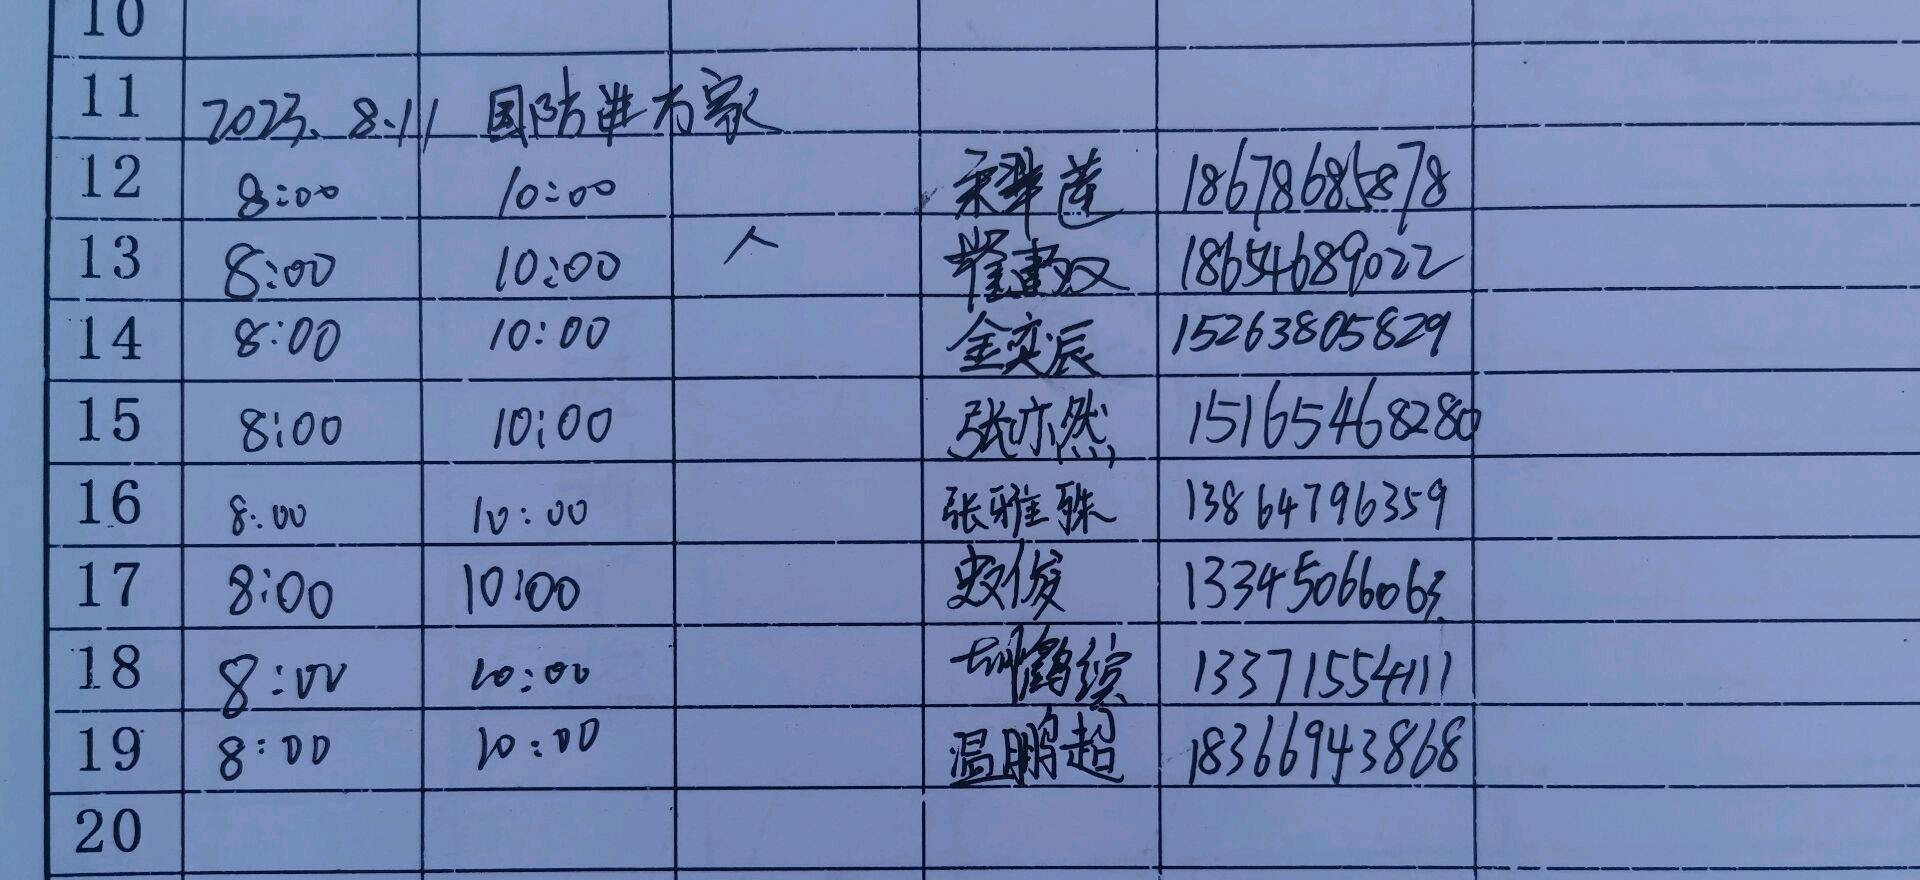 10
11 2023. 8.11 国防进万家
12 8:00 10:00 18678685878
13 8:00 10:00 18654689022
14 8:00 10:00 金奕辰 15263805829
15 8:00 10:00 张亦然 15165468280
16 8:00 10:00 张雅殊 13864796359
17 8:00 10:00 13345066063
18 8:00 10:00 13371554111
19 8:00 10:00 温鹏超 18366943868
20